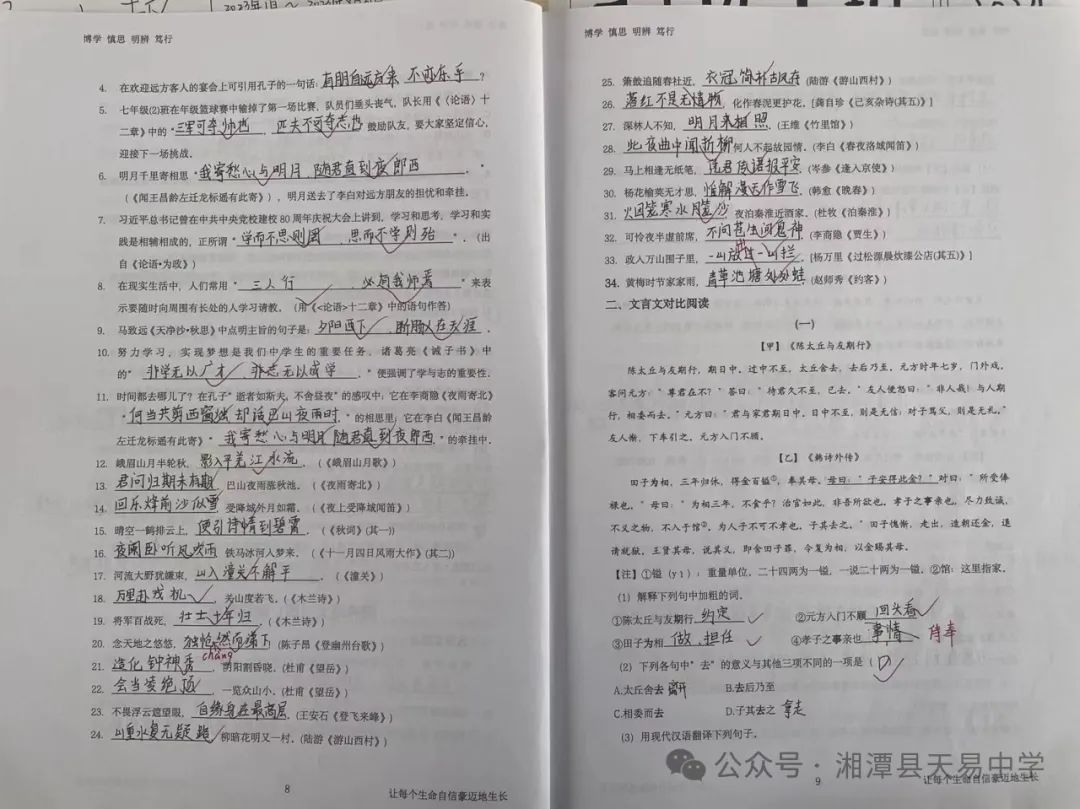 博学 慎思 明辨 笃行
4. 在欢迎远方客人的宴会上可引用孔子的一句话：有朋自远方来 不亦乐乎？
5. 七年级(2)班在年级篮球赛中输掉了第一场比赛，队员们垂头丧气，队长用《〈论语〉十
二章》中的“三军可夺帅也，匹夫不可夺志也鼓励队友，要大家坚定信心，
迎接下一场挑战。
6. 明月千里寄相思“我寄愁心与明月，随君直到夜郎西”
(《闻王昌龄左迁龙标遥有此寄》)，明月送去了李白对远方朋友的担忧和牵挂。
7. 习近平总书记曾在中共中央党校建校80周年庆祝大会上讲到，学习和思考、学习和实
践是相辅相成的，正所谓“学而不思则罔，思而不学则殆”。(出
自《论语·为政》)
8. 在现实生活中，人们常用“三人行，必有我师焉”来表
示要随时向周围有长处的人学习请教。(用《<论语>十二章》中的语句作答)
9. 马致远《天净沙·秋思》中点明主旨的句子是：夕阳西下，断肠人在天涯。
10. 努力学习，实现梦想是我们中学生的重要任务，诸葛亮《诫子书》中
的“非学无以广才，非志无以成学”便强调了学与志的重要性。
11. 时间都去哪儿了？在孔子“逝者如斯夫，不舍昼夜”的感叹中，它在李商隐《夜雨寄北》
“何当共剪西窗烛 却话巴山夜雨时”的相思里；它在李白《闻王昌龄
左迁龙标遥有此寄》“我寄愁心与明月 随君直到夜郎西”的牵挂中。
12. 峨眉山月半轮秋，影入平羌江水流。(《峨眉山月歌》)
13. 君问归期未有期，巴山夜雨涨秋池。(《夜雨寄北》)
14. 回乐烽前沙似雪，受降城外月如霜。(《夜上受降城闻笛》)
15. 晴空一鹤排云上，便引诗情到碧霄。(《秋词》(其一))
16. 夜阑卧听风吹雨，铁马冰河入梦来。(《十一月四日风雨大作》(其二))
17. 河流大野犹嫌束，山入潼关不解平。(《潼关》)
18. 万里赴戎机，关山度若飞。(《木兰诗》)
19. 将军百战死，壮士十年归。(《木兰诗》)
20. 念天地之悠悠，独怆然而涕下(陈子昂《登幽州台歌》)
chuàng
21. 造化钟神秀，阴阳割昏晓。(杜甫《望岳》)
22. 会当凌绝顶，一览众山小。(杜甫《望岳》)
23. 不畏浮云遮望眼，自缘身在最高层。(王安石《登飞来峰》)
24. 山重水复无疑路，柳暗花明又一村。(陆游《游山西村》)
8
让每个生命自信豪迈地生长
博学 慎思 明辨 笃行
25. 箫鼓追随春社近，衣冠简朴古风存(陆游《游山西村》)
26. 落红不是无情物，化作春泥更护花。[龚自珍《己亥杂诗(其五)》]
27. 深林人不知，明月来相照。(王维《竹里馆》)
28. 此夜曲中闻折柳，何人不起故园情。(李白《春夜洛城闻笛》)
29. 马上相逢无纸笔，凭君传语报平安。(岑参《逢入京使》)
30. 杨花榆荚无才思，惟解漫天作雪飞。(韩愈《晚春》)
31. 火因笼寒水月笼沙，夜泊秦淮近酒家。(杜牧《泊秦淮》)
32. 可怜夜半虚前席，不问苍生问鬼神。(李商隐《贾生》)
33. 政入万山围子里，一山放过一山拦。[杨万里《过松源晨炊漆公店(其五)》]
34. 黄梅时节家家雨，青草池塘处处蛙。(赵师秀《约客》)
二、文言文对比阅读
(一)
【甲】《陈太丘与友期行》
陈太丘与友期行，期日中。过中不至，太丘舍去，去后乃至。元方时年七岁，门外戏。
客问元方：“尊君在不？”答曰：“待君久不至，已去。”友人便怒曰：“非人哉！与人期
行，相委而去。”元方曰：“君与家君期日中。日中不至，则是无信；对子骂父，则是无礼。”
友人惭，下车引之。元方入门不顾。
【乙】《韩诗外传》
田子为相，三年归休，得金百镒①，奉其母。母曰：“子安得此金？”对曰：“所受俸
禄也。”母曰：“为相三年，不食乎？治官如此，非吾所欲也。孝子之事亲也，尽力致诚，
不义之物，不入于馆②。为人子不可不孝也，子其去之。”田子愧惭，走出，造朝还金，退
请就狱。王贤其母，说其义，即舍田子罪，令复为相，以金赐其母。
【注】①镒（yì）：重量单位，二十四两为一镒，一说二十两为一镒。②馆：这里指家。
(1) 解释下列句中加粗的词。
①陈太丘与友期行 约定 ②元方入门不顾 回头看
③田子为相 做，担任 ④孝子之事亲也 事情 侍奉
(2) 下列各句中“去”的意义与其他三项不同的一项是（D）
A.太丘舍去 离开 B.去后乃至
C.相委而去 D.子其去之 拿走
(3) 用现代汉语翻译下列句子。
9
让每个生命自信豪迈地生长
公众号·湘潭县天易中学